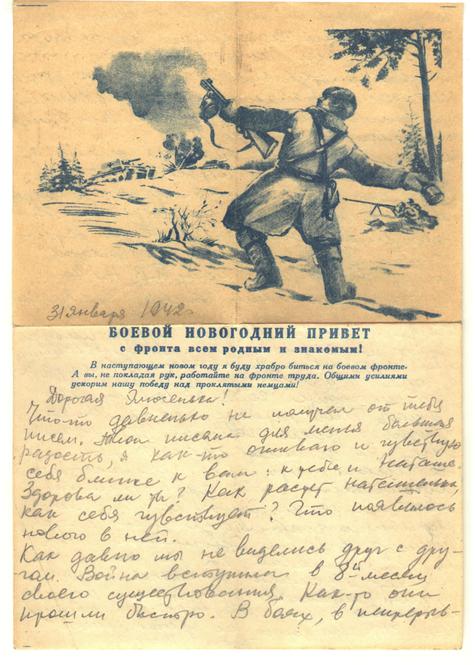 31 января 1942 г.
БОЕВОЙ НОВОГОДНИЙ ПРИВЕТ
с фронта всем родным и знакомым!
В наступающем новом году я буду храбро биться на боевом фронте.
А вы, не покладая рук, работайте на фронте труда. Общими усилиями
ускорим нашу победу над проклятыми немцами!
Дорогая Люсенька!
Что-то давненько не получал от тебя
писем. Твои письма для меня большая
радость, я как-то оживаю и чувствую
себя ближе к вам: к тебе и Наташе.
Здорова ли ты? Как растет Наташенька,
как себя чувствует? Что появилось
нового в ней.
Как давно мы не виделись друг с дру-
гом. Война вступила в 8-й месяц
своего существования. Как-то они
прошли быстро. В боях, в непрерыв-